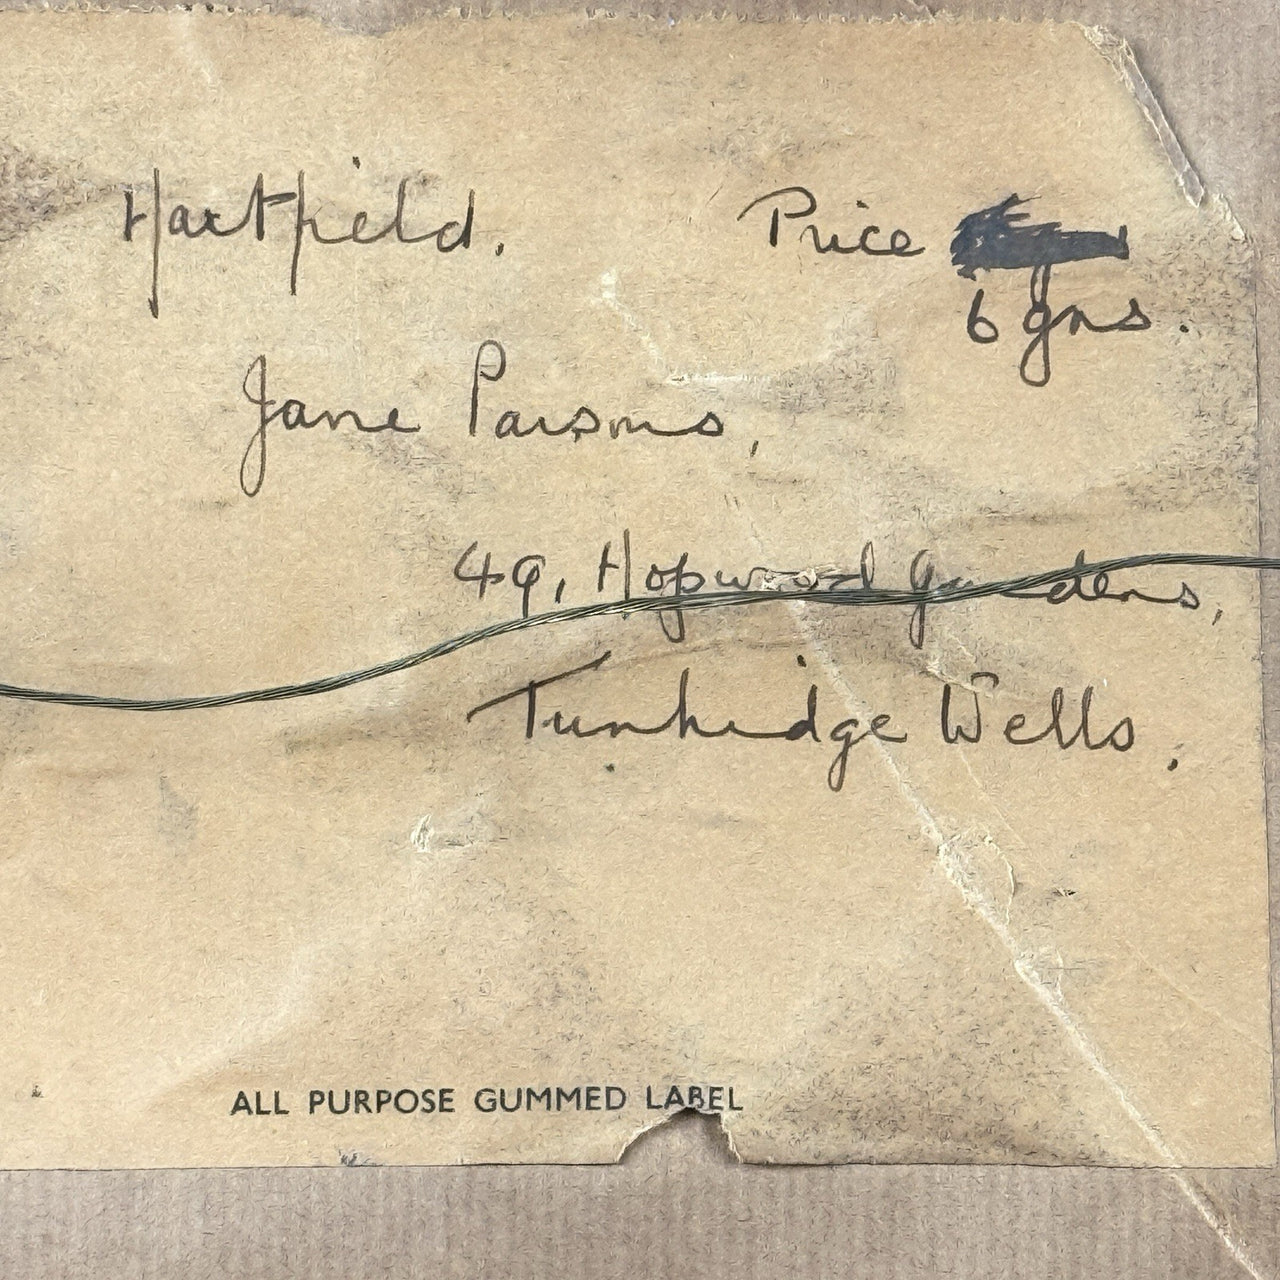 Hartfield. Price
6 gns.
Jane Parsons,
49, Hopwood Gardens,
Tunbridge Wells.
ALL PURPOSE GUMMED LABEL